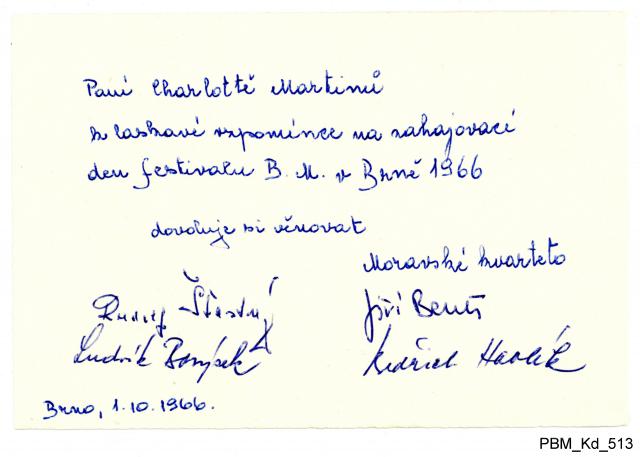 Paní Charlottě Martinů
k laskavé vzpomínce na zahajovací
den festivalu B. M. v Brně 1966
dovoluje si věnovat
Moravské kvarteto
Rudolf Šťastný
Jiří Beneš
Ludvík Borýsek
Bedřich Havlík
Brno, 1.10.1966.
PBM_Kd_513